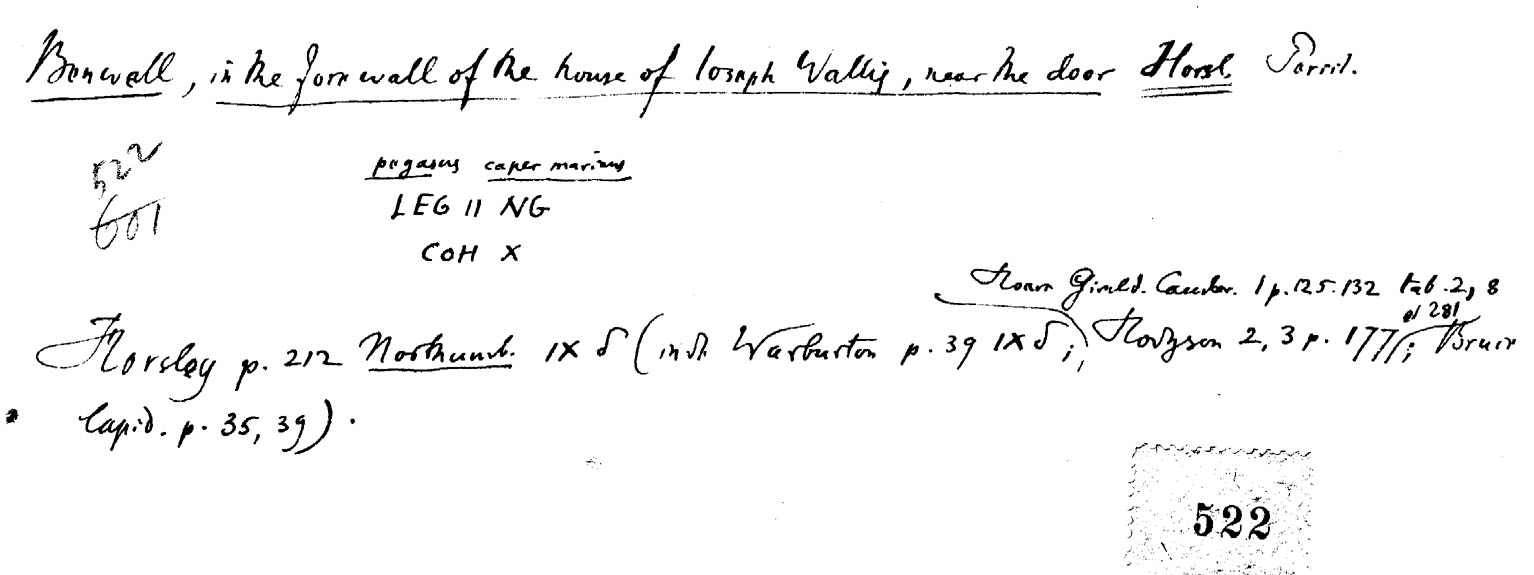 Benwall, in the fore wall of the house of Ioseph Wallis, near the door Horsl. Periit.
522
601
pegasus caper marinus
LEG II NG
COH X
Gouldl. Camden. 1 p. 125. 132 tab. 2, 8
et 281
Horsley p. 212 Northumb. IX δ (inde Warburton p. 39 IX δ; Hodgson 2, 3 p. 177; Bruce
lapid. p. 35, 39).
522